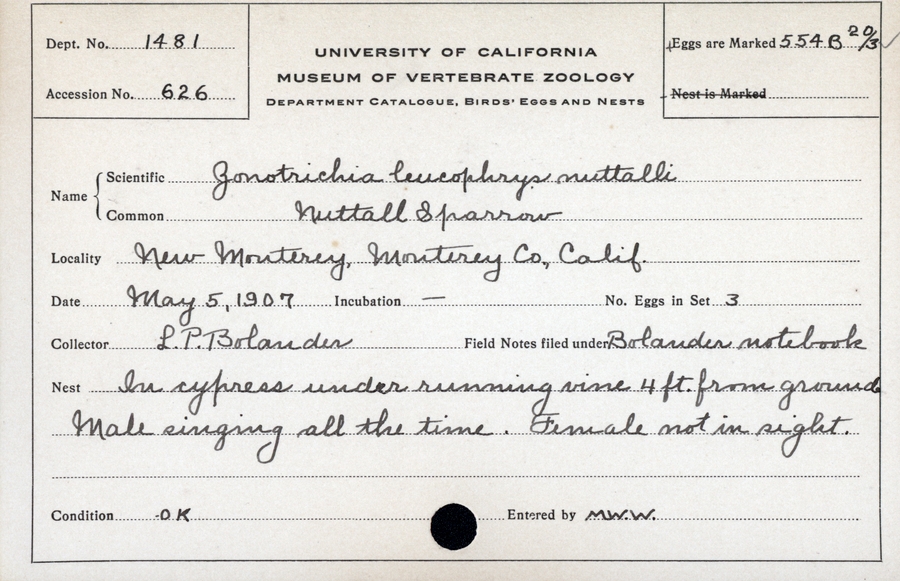 Dept. No. 1481
Accession No. 626
UNIVERSITY OF CALIFORNIA
MUSEUM OF VERTEBRATE ZOOLOGY
DEPARTMENT CATALOGUE, BIRDS' EGGS AND NESTS
Eggs are Marked 554B 20/3
Nest is Marked
Name
Scientific Zonotrichia leucophrys nuttalli
Common Nuttall Sparrow
Locality New Monterey, Monterey Co., Calif.
Date May 5, 1907 Incubation — No. Eggs in Set 3
Collector L.P. Bolander Field Notes filed under Bolander notebook
Nest In cypress under running vine 4 ft. from ground
Male singing all the time. Female not in sight.
Condition OK Entered by M.W.W.